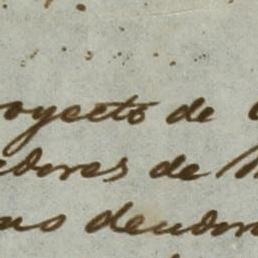 royecto de
edores de
deudor